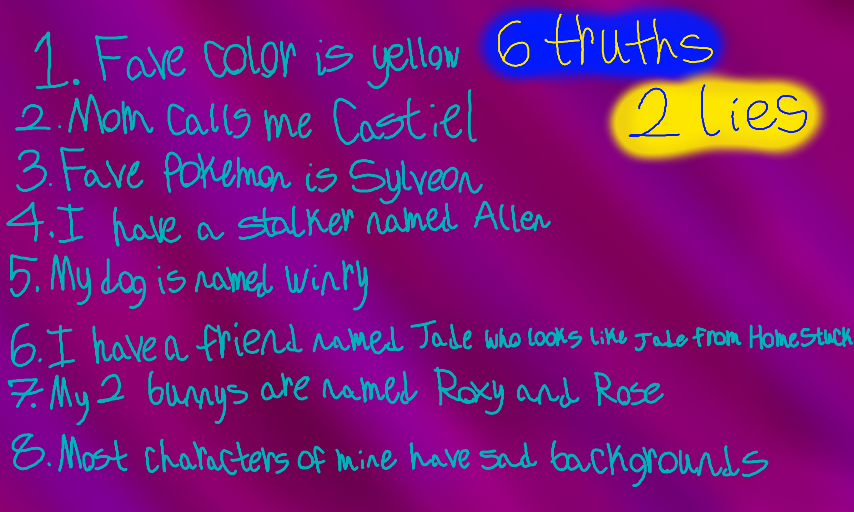 1. Fave color is yellow
6 truths
2 lies
2. Mom calls me Castiel
3. Fave Pokemon is Sylveon
4. I have a stalker named Allen
5. My dog is named Winry
6. I have a friend named Jade who looks like Jade from Homestuck
7. My 2 bunnys are named Roxy and Rose
8. Most characters of mine have sad backgrounds